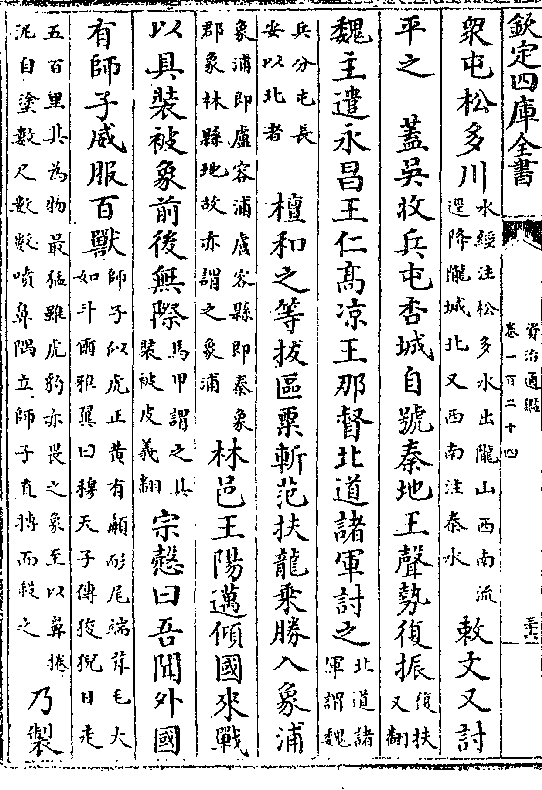 欽定四庫全書
資治通鑑
卷一百二十四
衆屯松多川水經注松多水出隴山西南流逕降隴城北又西南注秦水敕文又討
平之　蓋吳收兵屯杏城自號秦地王聲勢復振復扶又翻
魏主遣永昌王仁高凉王那督北道諸軍討之北道諸軍謂魏
兵分屯長安以北者　檀和之等拔區粟斬范扶龍乘勝入象浦
象浦即盧容浦盧容縣即秦象郡象林縣地故亦謂之象浦林邑王陽邁傾國來戰
以具裝被象前後無際馬甲謂之具裝被皮義翻宗慤曰吾聞外國
有師子威服百獸師子似虎正黄有䫇耏尾端茸毛大如斗爾雅翼曰穆天子傳狻猊日走
五百里其為物最猛雖虎豹亦畏之象至以鼻捲泥自塗數尺數數噴鼻隅立師子直摶而殺之乃製